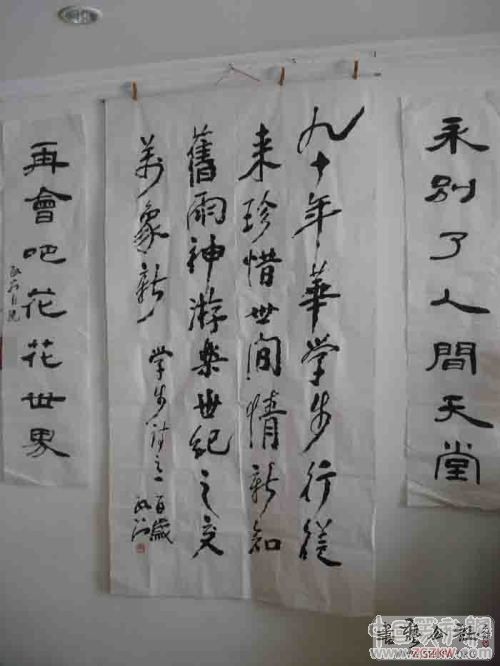 永別了人間天堂
九十年華学步行從
来珍惜世间情新知
舊雨神游樂世紀之交
萬象新
学步詩之一
百歲
再會吧花花世界
自挽
ZGZKW.